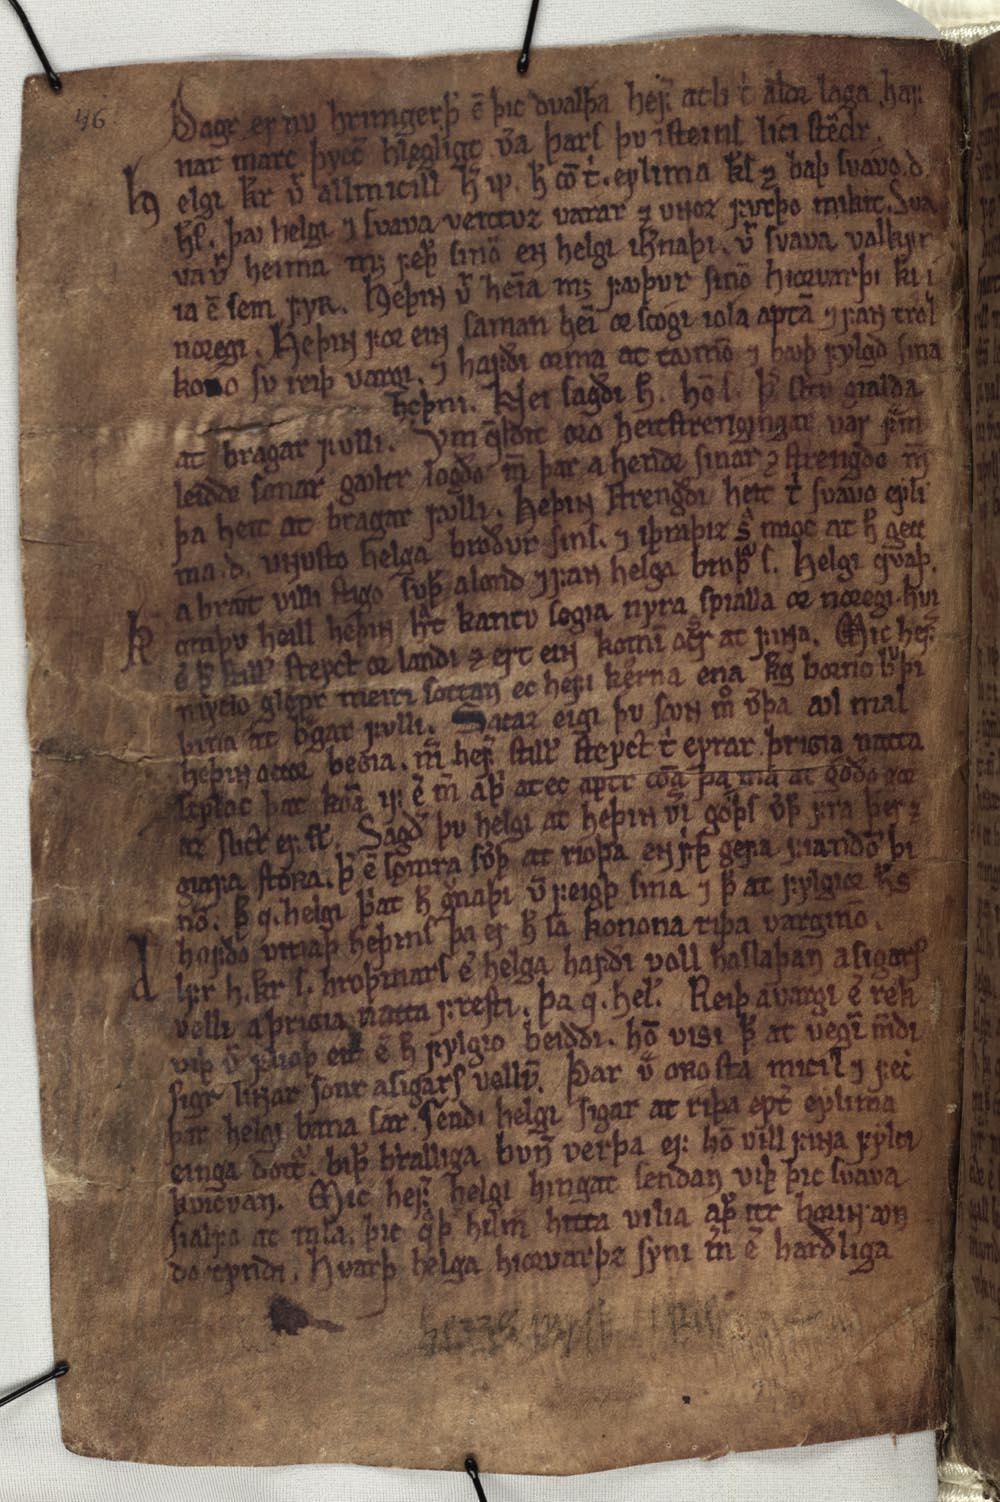 46
Dagr er nv hrimgerþ ē þic dvalþa hef: atli t̓ aldr laga haf
nar marc þycc̄ hlęgligt v̓a þars þv i steins lici stēdr.
elgi kr̄ v̓ allmicill h̓ kō t̓ eylima kſ ⁊ baþ svávo. d.
h̄ſ. þav helgi ⁊ svava veittuz varar ⁊ vnoz fvrþo mikit. Sva
va v̓ heima m; feþ̓ sinō en helgi ihnaþi. v̓ svava valkyr
ia ē sem fyR. Heþin v̓ heīa m; favþvr sinō hiorvarþi kī i
noregi. Heþin for ein saman heī or scogi iola aptā ⁊ fan trol
kono sv reiþ vargi. ⁊ hafði orma at tavmō ⁊ bavþ fylgð sina
heþni. Nei sagði h̄. hō s. þ̓ scto gialda
at bragar fvlli. Vm qldit oro heitstrengingar var frām
leiddr sonar gavltr logðo m̄ þar a hendr sinar ⁊ strengðo m̄
þa heit at bragar fvlli. Heþin strengði heit t̓ svavo eyli
ma. d. vnvsto helga broðvr sins. ⁊ iþraþiz s̄ mioc at h̄ gecc
a bravt villi stigo svþ̓ a lond ⁊ fan helga broþ̓ s. Helgi qvaþ.
omþv heill heþin hv̓t kantv segia nyra spialla or noregi. hvi
ē þ̓ stillir stęyct or landi ⁊ ert ein komī oſſ at fiNa. Mic hef̓
myclo glępr meiri sottan ec hefi kerna ena kg̅ borno brv̓þi
þina at bragar fvlli. Sacaz eigi þv son mō v̓þa avl mal
heþin occor begia. m̄ hef̓ stillir stęyct t̓ eyrar þrigia natta
scylac þar komā if: ē m̄ aþ̓ at ec aptr comā þa ma at goðo gor
az slict ef scl. Sagð̓ þv helgi at heþin v̓i goþ̓s v̓þ̓ fra þer ⁊
giafa stora. þ̓ ē sęmra sv̓þ̓ at rioþa en friþ gefa fiandō þi
nō. þ̓ q. helgi þ̓at h̄ grvnaþi v̓ feigþ sina ⁊ þ̓ at fylgior h̄s
hofðo vitiaþ heþins þa er h̄ sa konona riþa varginō.
lfr h. kr̄ s. hroþmars ē helga hafði voll haslaþan̄ a sigars
velli a þrigia natta fresti. þa q. hel̓. Reiþ a vargi ē rek
viþ v̓ flioþ eitt ē h̄ fylgio beiddi. hō vissi þ̓ at vegin m̄di
sigr linar sonr a sigars vellv̄. Þar v̓ orosta micil ⁊ fec
þar helgi bana sar. Sendi helgi sigar at riþa ept̓ eylima
einga dott̓. biþ̓ bralliga bvn̄ verþa ef: hō vill fiNa fylci
kvicvan. Mic hef̓ helgi hingat sendan viþ þic svava
sialfa at męla. þic q̓þ̓ hilm̄ hitta vilia aþ̓ itr boriN avn
do tyndi. Hvarþ helga hiorvarþz syni m̄ ē harðliga